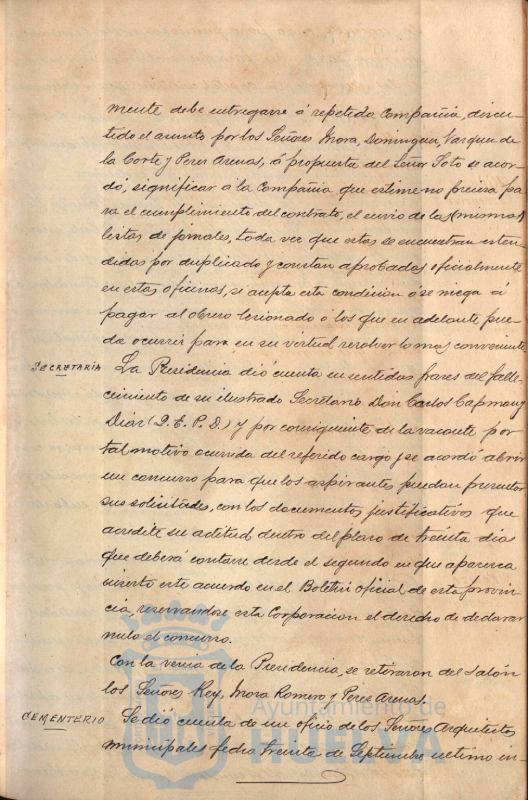 mente debe entregarse á repetida Compañia, discu-
tido el asunto por los Señores Mora, Dominguez Vazquez de
la Corte y Perez Arenas, á propuesta del Señor Soto se acor-
dó, significar á la Compañia que estime no precisa pa
ra el cumplimiento del contrato, el envio de las (mismas)
listas de jornales, toda vez que estas se encuentran esten
didas por duplicado y constan aprobadas oficialmente
en estas oficinas, si acepta esta condicion ó se niega á
pagar al obrero lesionado ó los que en adelante pue-
da ocurrir para en su virtud resolver lo mas conveniente
SECRETARÍA La Presidencia dió cuenta en sentidas frases del falle-
cimiento de su ilustrado Secretario Don Carlos Capmany
Diaz (Q. E. P. D.) y por consiguiente de la vacante por
tal motivo ocurrida del referido cargo y se acordó abrir
un concurso para que los aspirantes puedan presentar
sus solicitudes, con los documentos justificativos que
acredite su actitud dentro del plazo de treinta dias
que deberá contarse desde el segundo en que aparezca
inserto este acuerdo en el Boletin oficial de esta provin-
cia, reservandose esta Corporacion el derecho de declarar
nulo el concurso.
Con la venia de la Presidencia, se retiraron del Salón
los Señores Rey, Mora Romero y Perez Arenas.
CEMENTERIO Se dió cuenta de un oficio de los Señores Arquitectos
municipales fecha treinta de Septiembre ultimo in-
Ayuntamiento de
HUELVA